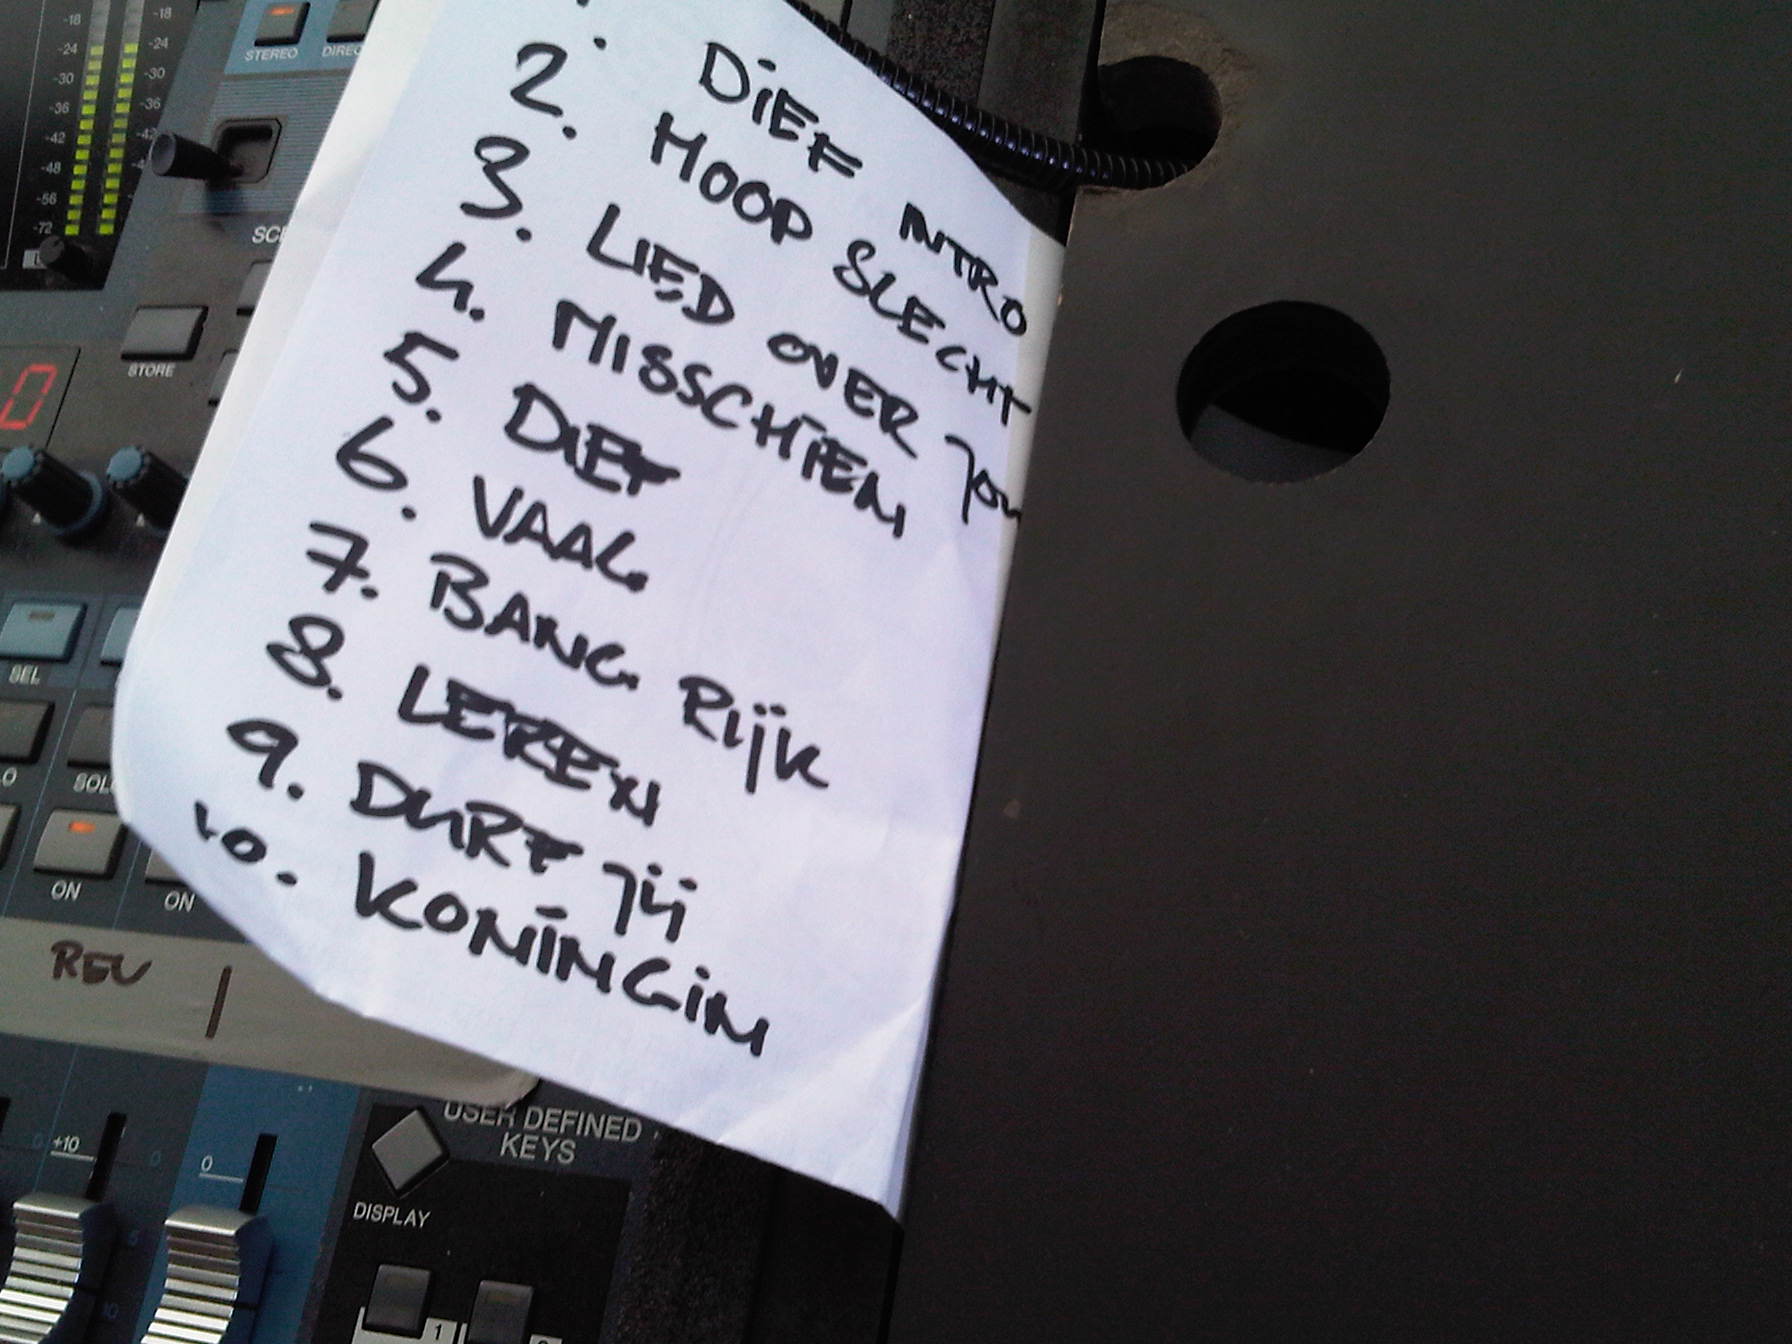 -18
-18
-24
-24
-30
-30
-36
-36
-42
-42
-48
-56
-72
STEREO
DIREC
STORE
0
SEL
SOL
ON
ON
REV
1. DIEF INTRO
2. HOOP SLECHT
3. LIED OVER JOU
4. MISSCHIEN
5. DIEF
6. VAAG
7. BANG RIJK
8. LEREN
9. DURF JIJ
10. KONINGIN
USER DEFINED
KEYS
DISPLAY
+10
0
0
0
5
10
1